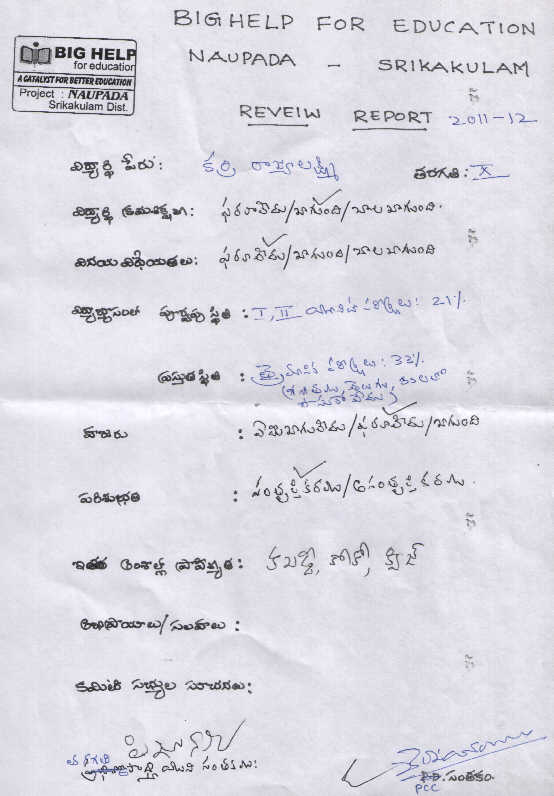 BIG HELP FOR EDUCATION
BIG HELP
for education
A CATALYST FOR BETTER EDUCATION
Project : NAUPADA
Srikakulam Dist.
NAUPADA - SRIKAKULAM
REVEIW REPORT 2011-12
విద్యార్థి పేరు: కర్రి రాజ్యలక్ష్మి తరగతి: X
విద్యార్థి క్రమశిక్షణ: ఫరవాలేదు/బాగుంది/చాలబాగుంది.
వినయ విధేయతలు: ఫరవాలేదు/బాగుంది/చాలబాగుంది
పూర్వపు స్థితి : I, II యూనిట్ పరీక్షలు: 21%
ప్రస్తుత స్థితి : త్రైమాసిక పరీక్షలు: 32%
హాజరు : ఏమిబాగులేదు/ఫరవాలేదు/బాగుంది
పరిశుభ్రత : సంతృప్తికరము/అసంతృప్తికరము.
ఇతర అంశాల్లో ప్రావీణ్యత: కబడ్డి, ఖోఖో, క్విజ్
అభిప్రాయాలు/సలహాలు :
కమిటి సభ్యుల సూచనలు:
తరగతి సంతకము:
సంతకం.
PCC